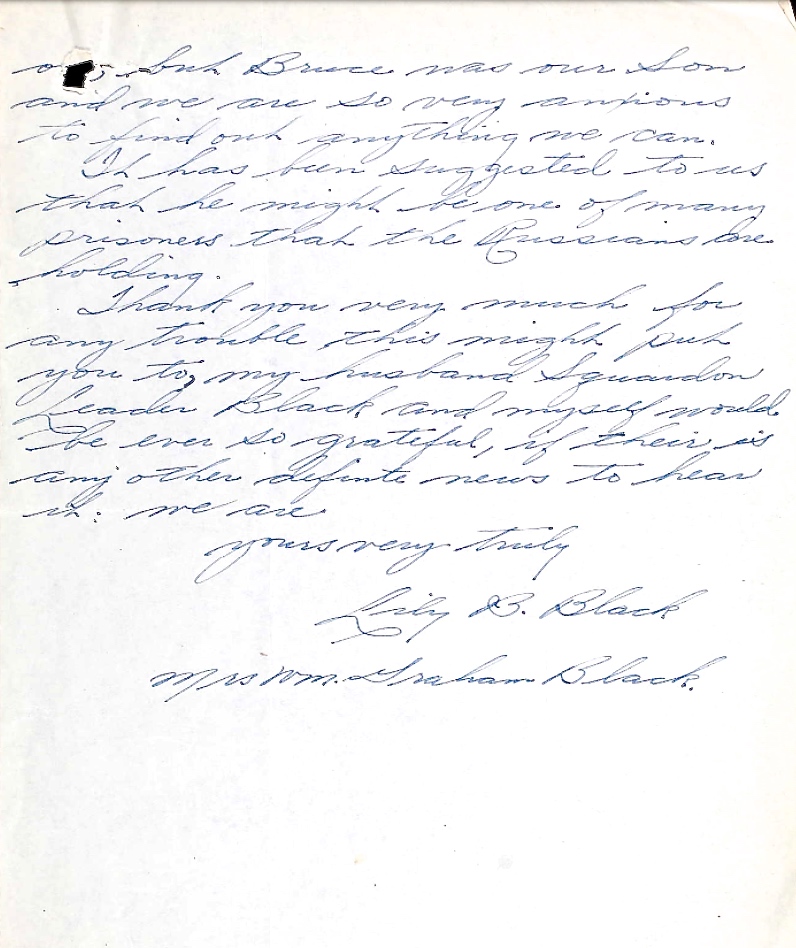 but Bruce was our Son
and we are so very anxious
to find out anything we can.
It has been suggested to us
that he might be one of many
prisoners that the Russians are
holding.
Thank you very much for
any trouble this might put
you to, my husband Squardon
Leader Black and myself would
be ever so grateful, if their is
any other definte news to hear
it: we are
yours very truly
Lily B. Black
Mrs Wm. Graham Black.